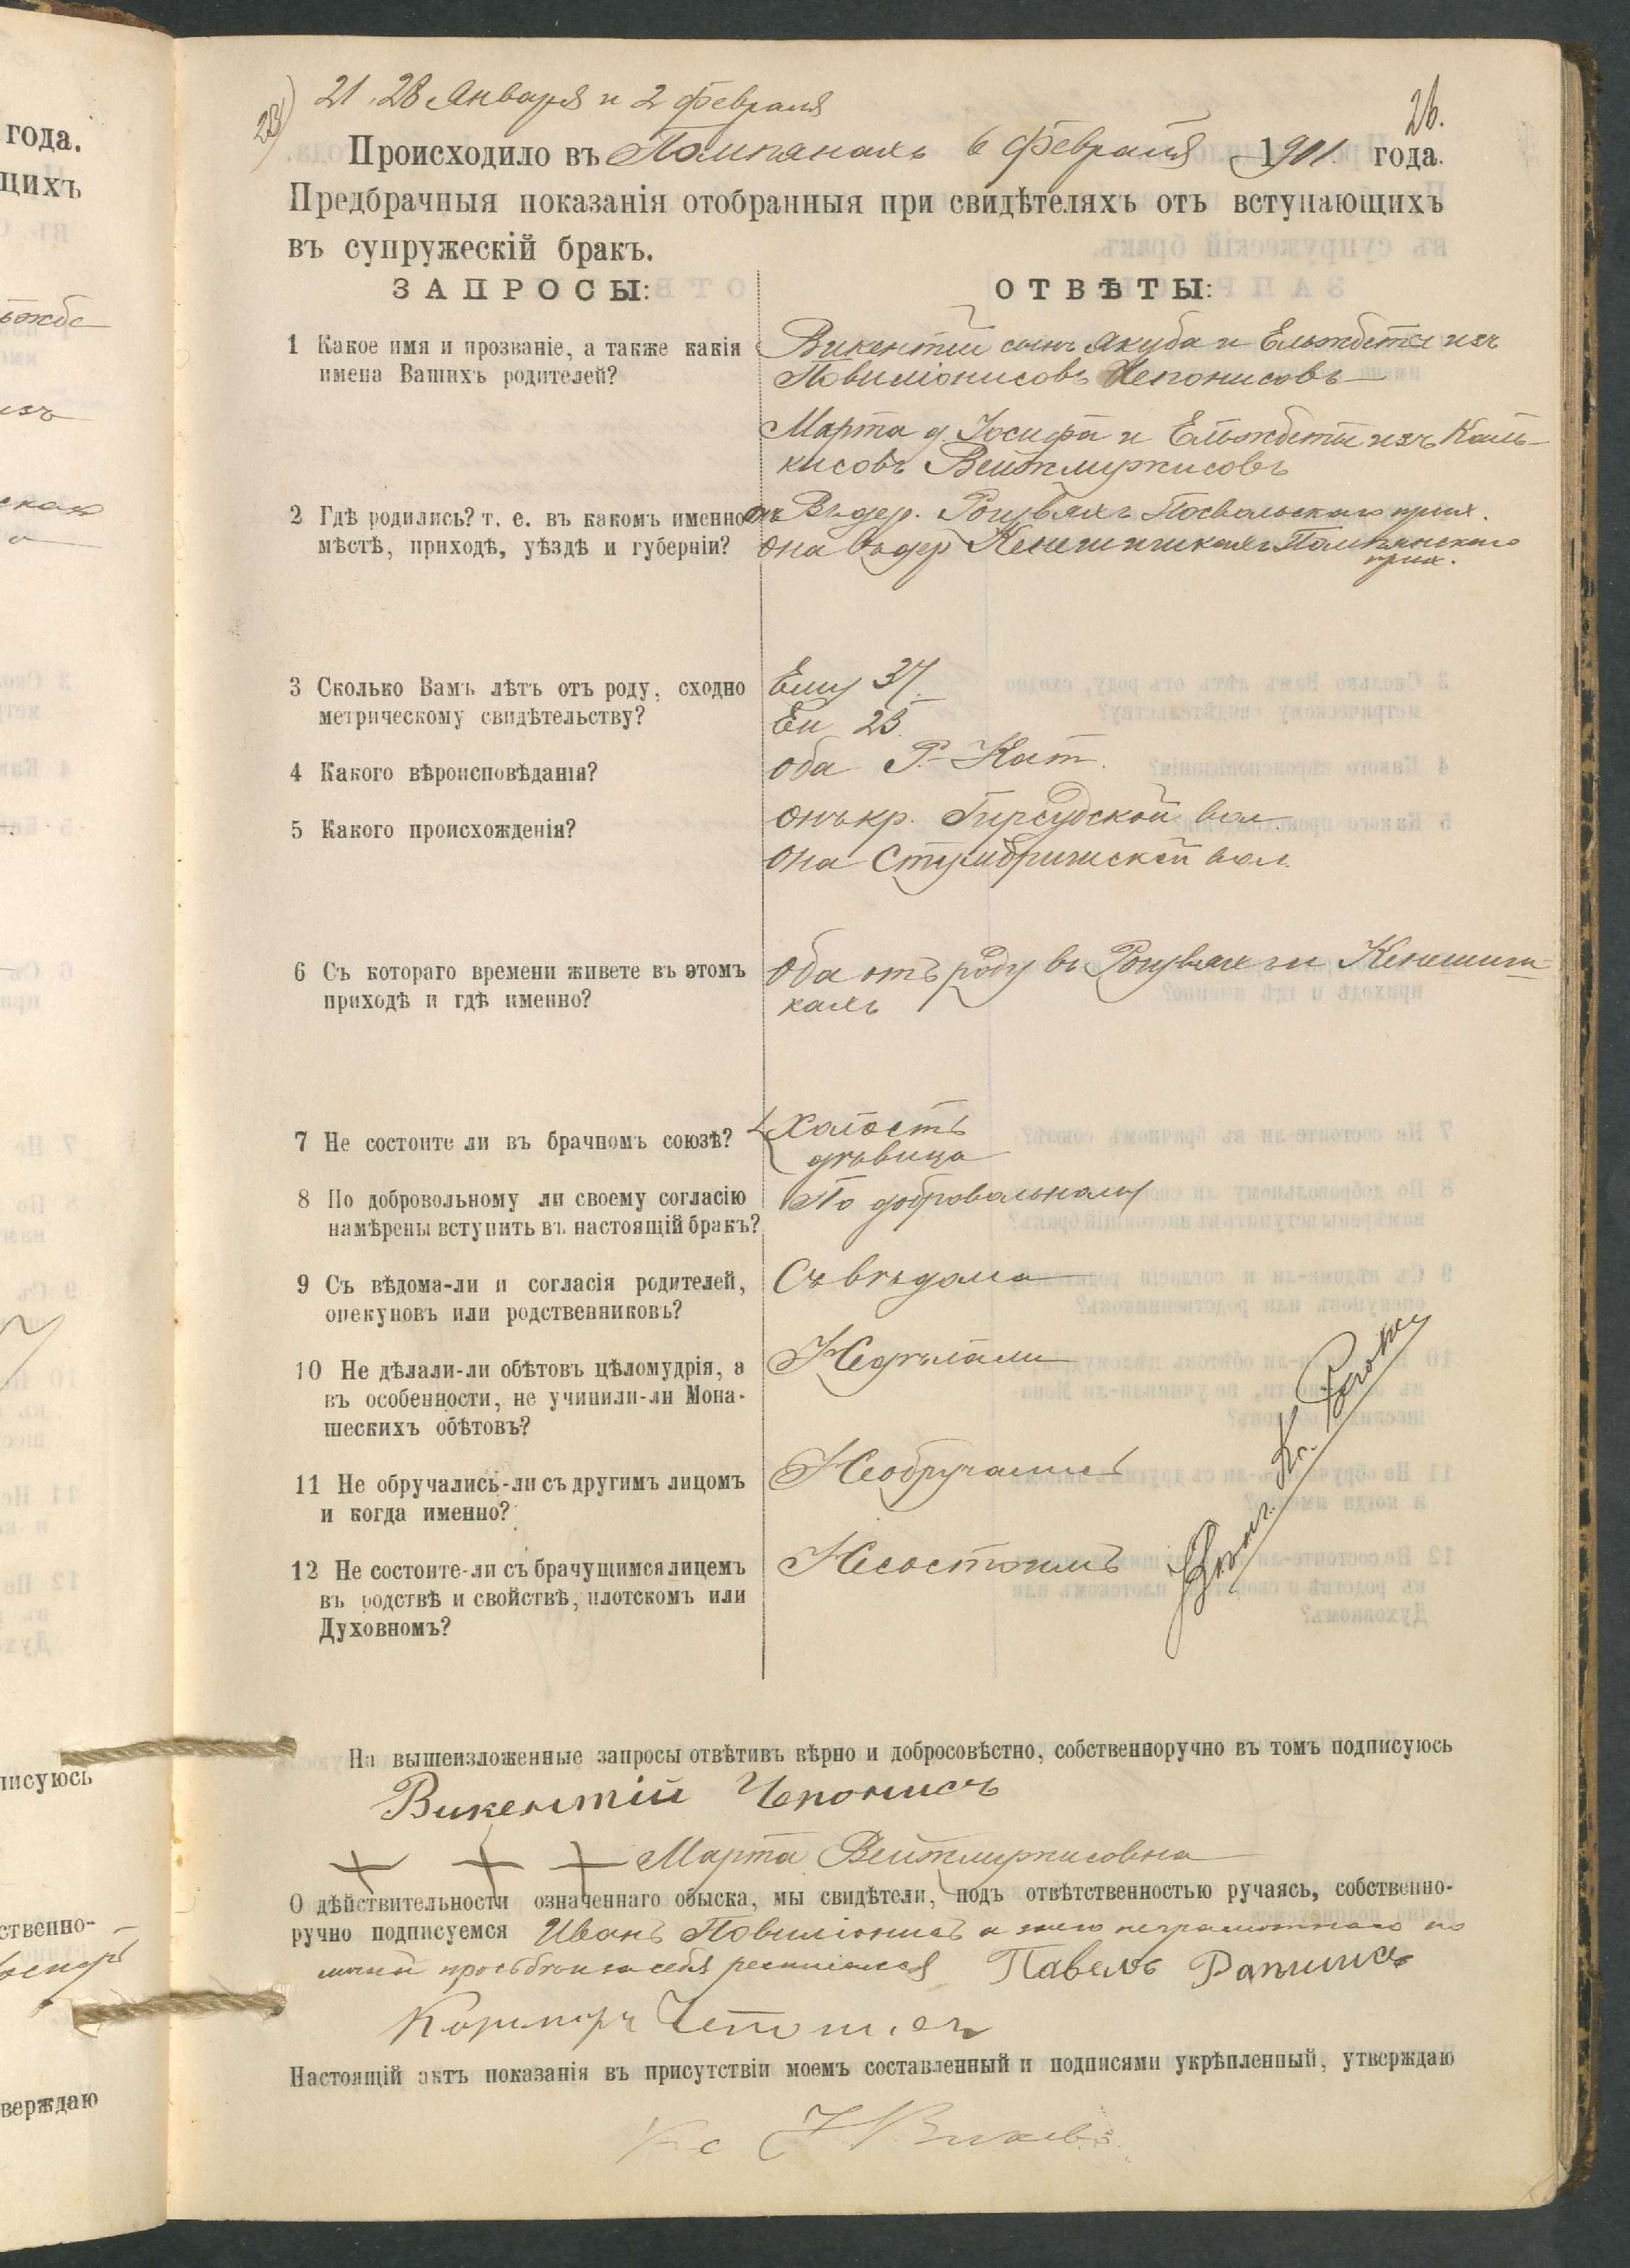 года.
цихъ
писуюсь
ственно-
верждаю
28)
21, 28 Января и 2 февраля
26.
Происходило въ Помпянахъ 6 Февраля 1901. года.
Предбрачныя показанія отобранныя при свидѣтеляхъ отъ вступающихъ
въ супружескій бракъ.
ЗАПРОСЫ:
ОТВѢТЫ:
1 Какое имя и прозваніе, а также какія
имена Вашихъ родителей?
Викентій сынъ Якуба и Ельжбеты изъ
Повиліонисовъ Чепонисовъ
Марта д. Іосифа и Ельжбеты изъ Каль-
кисовъ Вейтмужисовъ
2 Гдѣ родились? т. е. въ какомъ именно
мѣстѣ, приходѣ, уѣздѣ и губерніи?
онъ Въ дер. Посвольскаго прих.
она въ дер Помпянскаго
прих.
3 Сколько Вамъ лѣтъ отъ роду, сходно
метрическому свидѣтельству?
Ему 37.
Еи 25.
4 Какого вѣроисповѣданія?
оба Р.-Кат.
5 Какого происхожденія?
онъ кр. Гирсудской вол.
она Стумбришской вол.
6 Съ котораго времени живете въ этомъ
приходѣ и гдѣ именно?
Оба отъ роду въ
кахъ
7 Не состоите ли въ брачномъ союзѣ?
Холостъ
дѣвица
8 По добровольному ли своему согласію
намѣрены вступить въ настоящій бракъ?
По добровольному
9 Съ вѣдома-ли и согласія родителей,
опекуновъ или родственниковъ?
Съ вѣдома
10 Не дѣлали-ли обѣтовъ цѣломудрія, а
въ особенности, не учинили-ли Мона-
шескихъ обѣтовъ?
Недѣлали
11 Не обручались-ли съ другимъ лицомъ
и когда именно?
Необручались
12 Не состоите-ли съ брачущимся лицемъ
въ родствѣ и свойствѣ, плотскомъ или
Духовномъ?
Несостоимъ
На вышеизложенные запросы отвѣтивъ вѣрно и добросовѣстно, собственноручно въ томъ подписуюсь
Викентій Чепонисъ
+ + + Марта Вейтмужисовна
О дѣйствительности означеннаго обыска, мы свидѣтели, подъ отвѣтственностью ручаясь, собственно-
ручно подписуемся Иванъ Повиліонисъ а за его неграмотнаго по
личной просьбѣ и за себя росписался Павелъ
Чепонисъ
Настоящій актъ показанія въ присутствіи моемъ составленный и подписями укрѣпленный, утверждаю